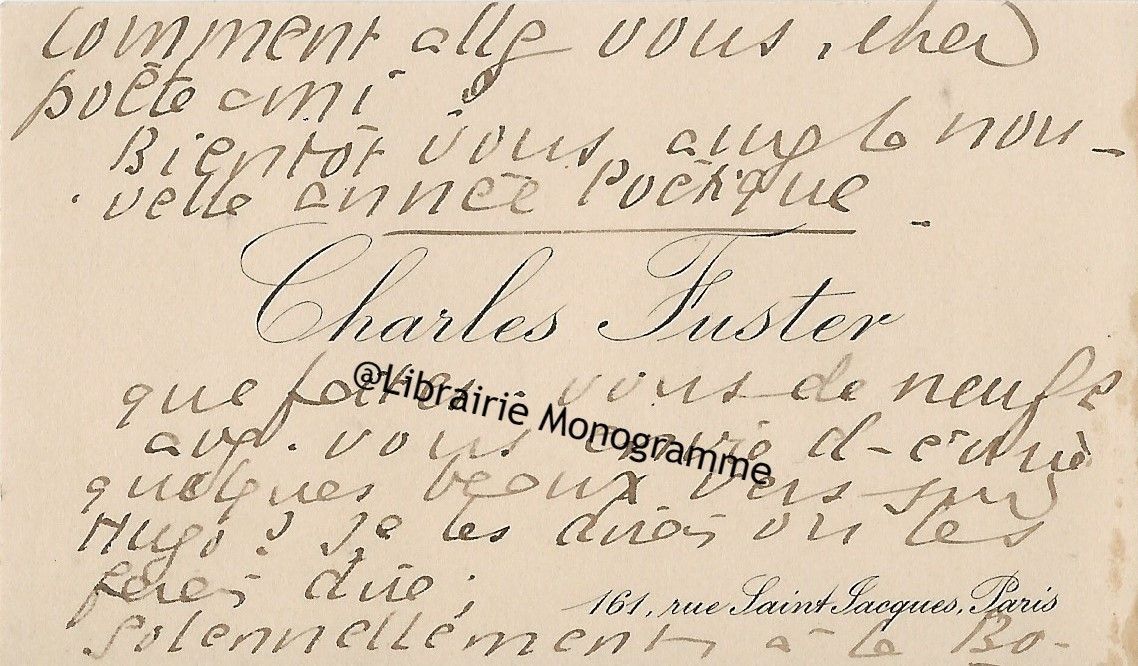 Comment allez vous, cher
poète ami ?
Bientôt vous aurez le nou-
velle année Poétique -
Charles Fuster
que faites-vous de neuf ?
avez-vous envie d'écrire
@Librairie Monogramme
quelques beaux vers sur
Hugo ? Je les dirai ou les
ferai dire ;
161, rue Saint Jacques, Paris
Solennellement, à la Bo-